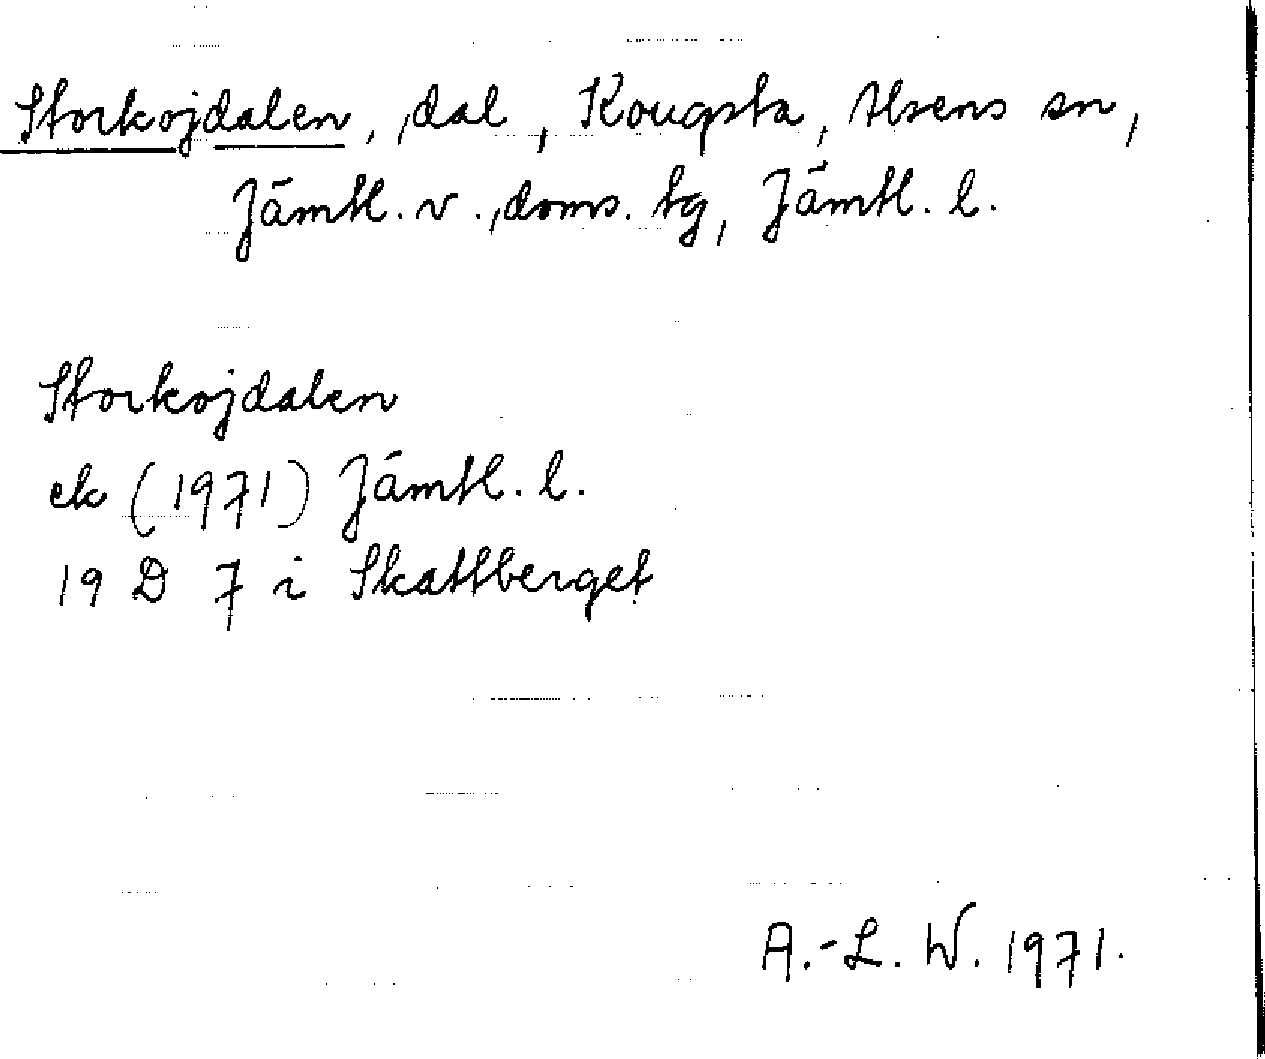 Storkojdalen, dal, Kougsta, Alsens sn,
Jämtl. v., doms. tg, Jämtl. l.
Storkojdalen
ek (1971) Jämtl. l.
19 D 7 i Skattberget
A.-L. W. 1971.